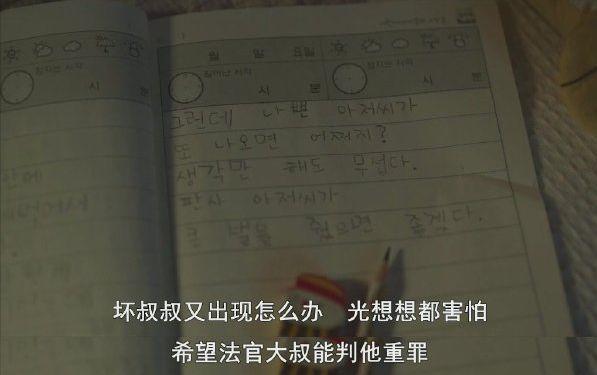 월 일 요일
잠자는 시각
시 분
일어난 시각
시 분
그런데 나쁜 아저씨가
또 나오면 어쩌지?
생각만 해도 무섭다.
판사 아저씨가
큰 벌을 줬으면 좋겠다.
坏叔叔又出现怎么办 光想想都害怕
希望法官大叔能判他重罪